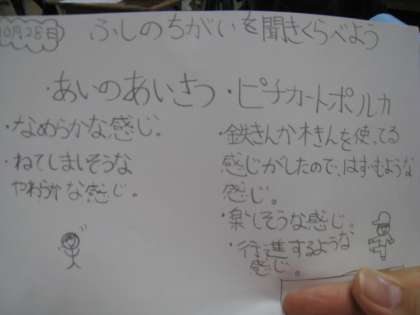 10月28日
ふしのちがいを聞きくらべよう
・あいのあいさつ
・なめらかな感じ。
・ねてしましそうな
やわらかな感じ。
・ピチカートポルカ
・鉄きんか木きんを使ってる
感じがしたので、はずむような
感じ。
・楽しそうな感じ。
・行進するような
感じ。